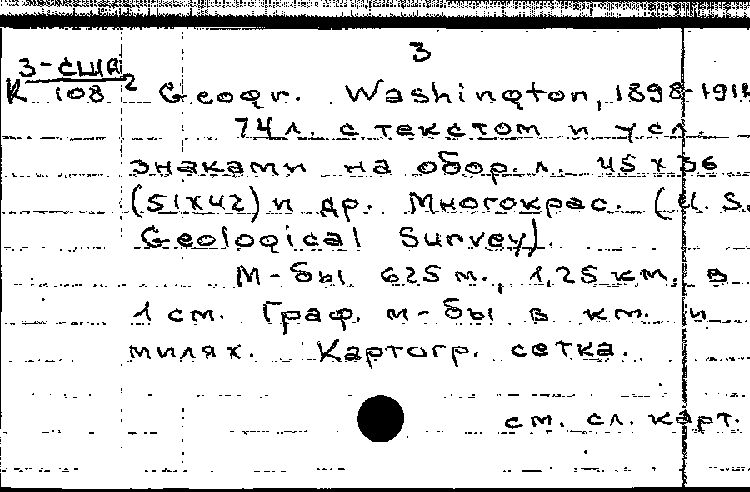 3
З-США
К 108 2 Geogr. Washington, 1898-191
74 л. с текстом и усл.
знаками на обор. л. 45 х 36
(51х42) и др. Многокрас. (U. S.
Geological Survey).
М-бы 625 м., 1,25 км. в
1 см. Граф. м-бы в км. и
милях. Картогр. сетка.
см. сл. карт.